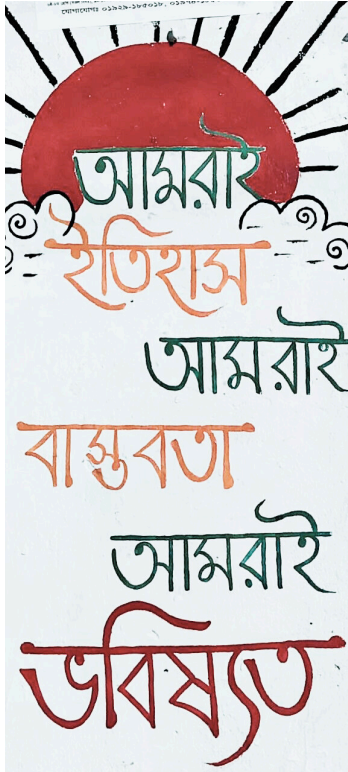 আমরাই
ইতিহাস
আমরাই
বাস্তবতা
আমরাই
ভবিষ্যত